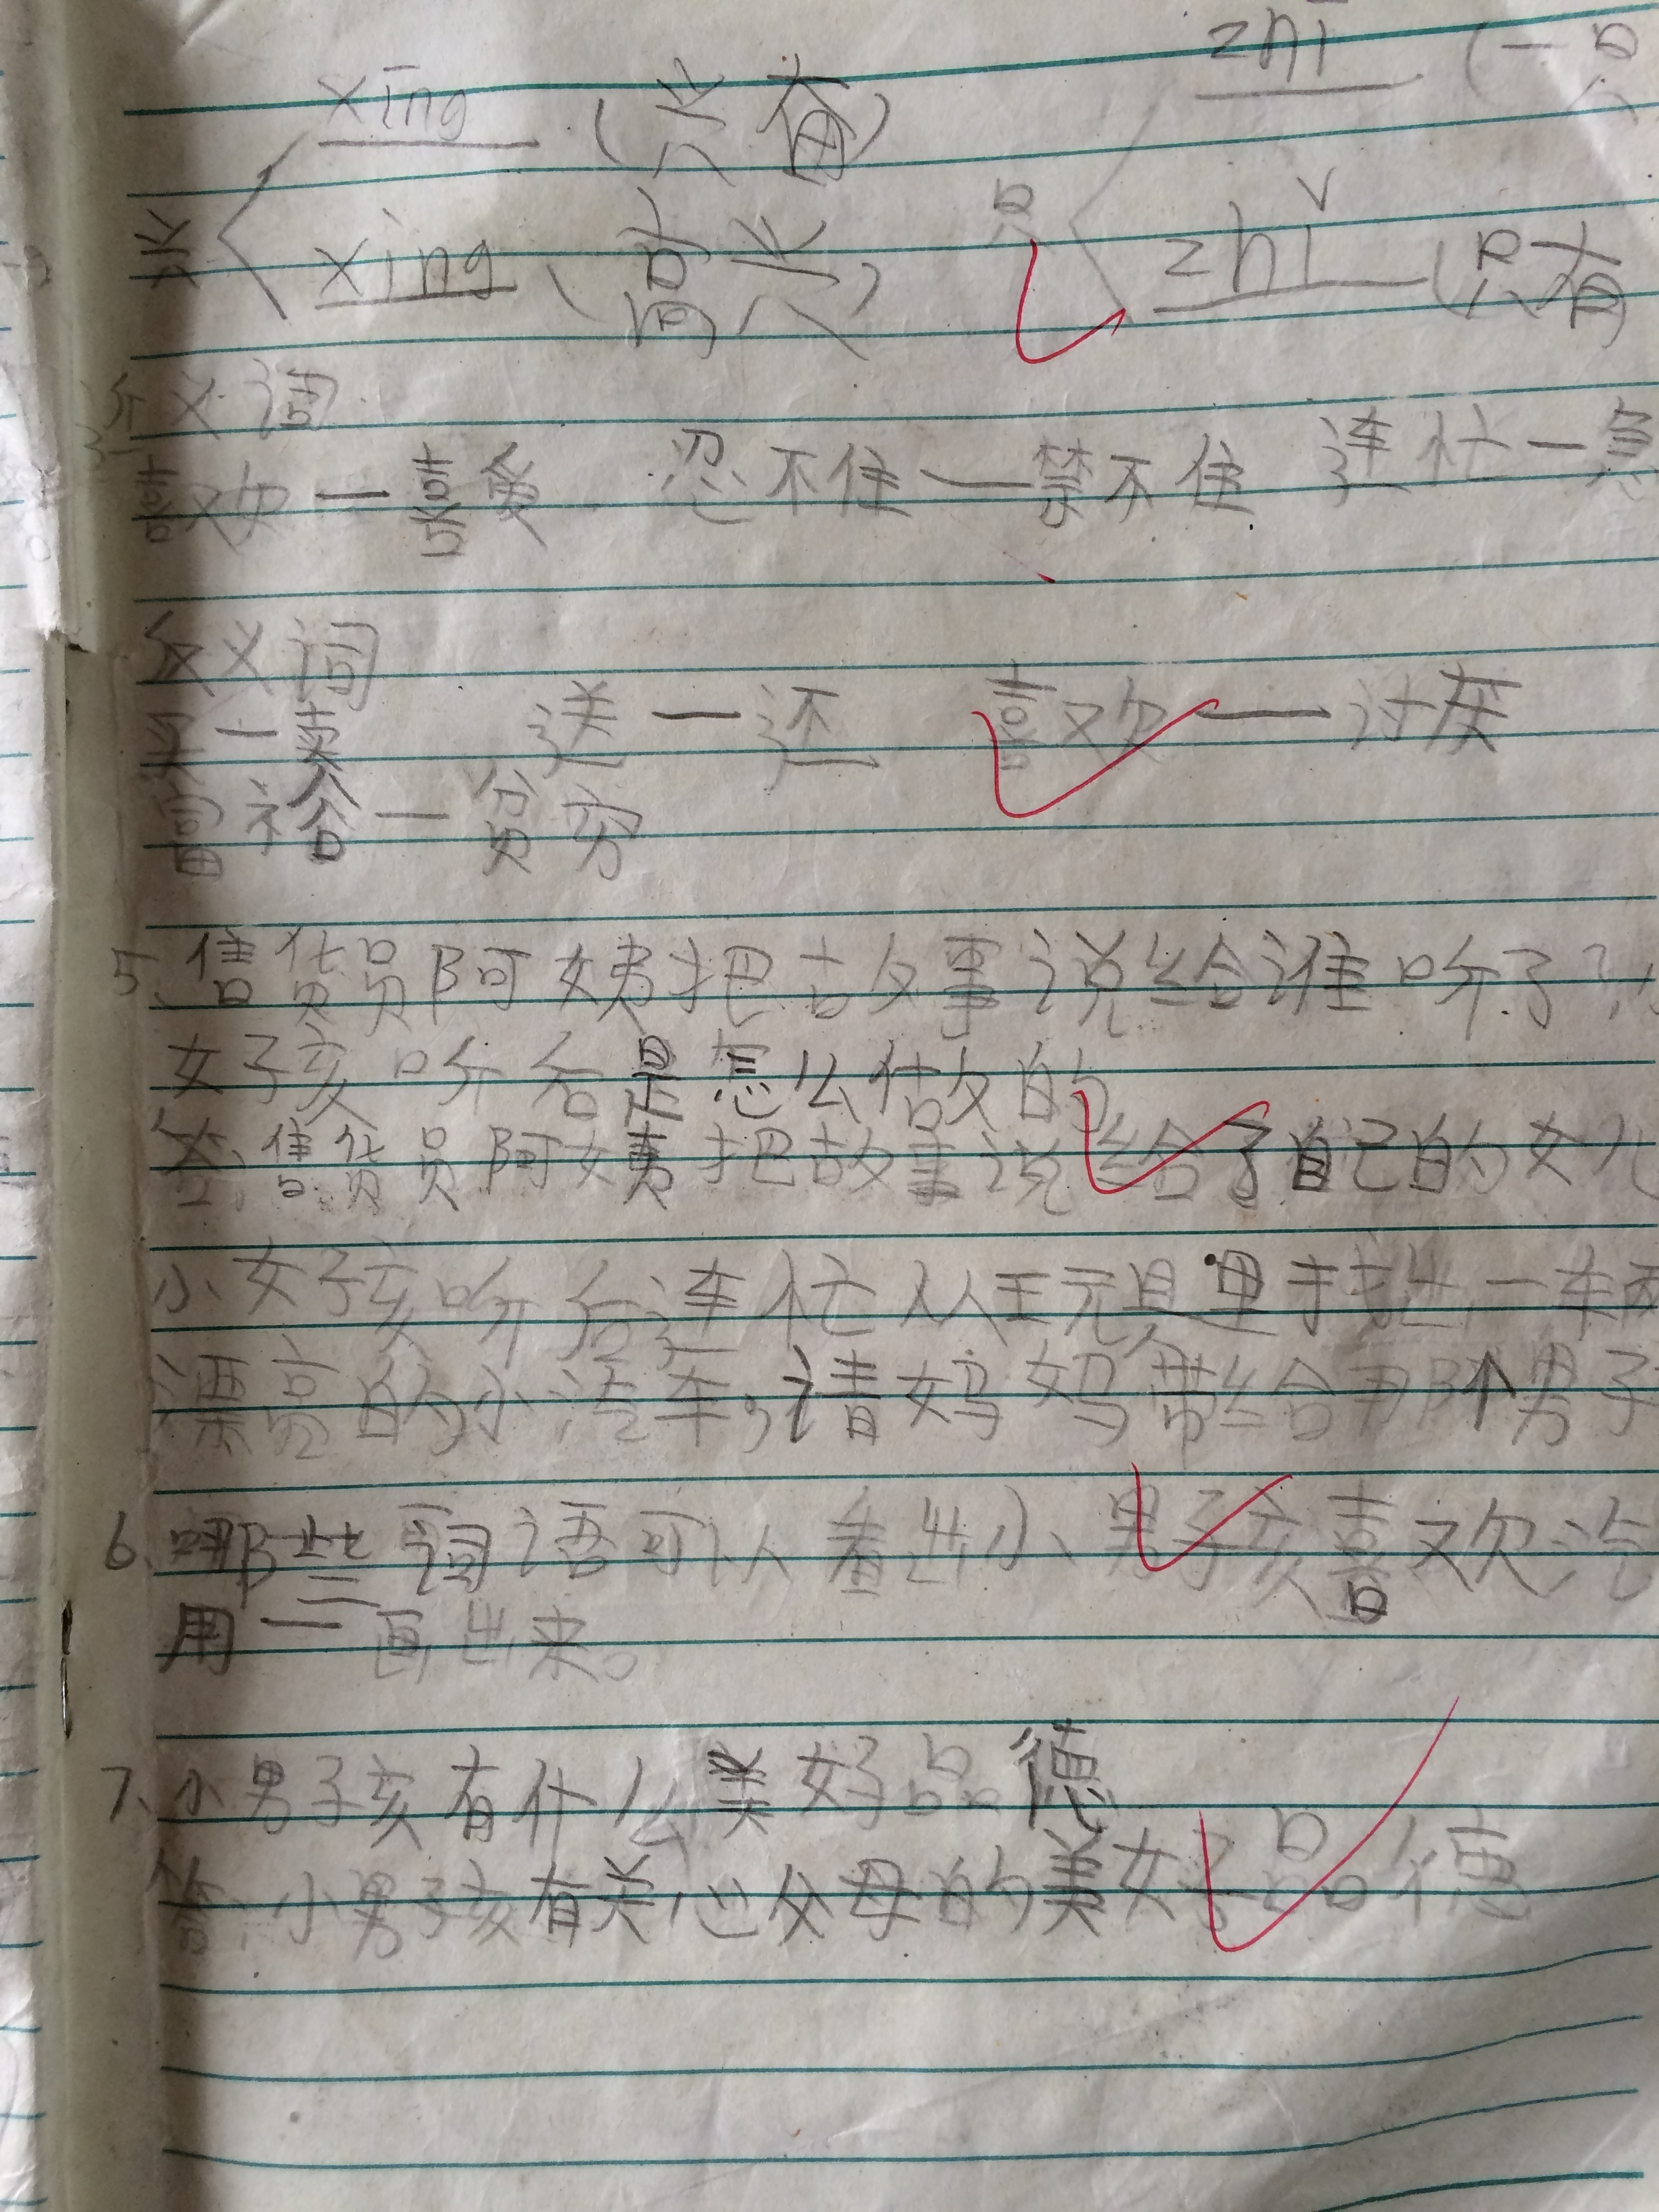 xīng (兴奋) zhī (一只
兴 只
xìng (高兴) zhǐ (只有
近义词
喜欢一喜爱 忍不住一禁不住 连忙一急
反义词
买一卖 送一还 喜欢一讨厌
富裕一贫穷
5、售货员阿姨把故事说给谁听了?小
女孩听后是怎么做的
答:售货员阿姨把故事说给了自己的女儿
小女孩听后连忙从玩具里找出一车两
漂亮的小汽车,请妈妈带给那个男孩
6、哪些词语可以看出小男孩喜欢汽
用一画出来。
7、小男孩有什么美好品德
答:小男孩有关心父母的美好品德